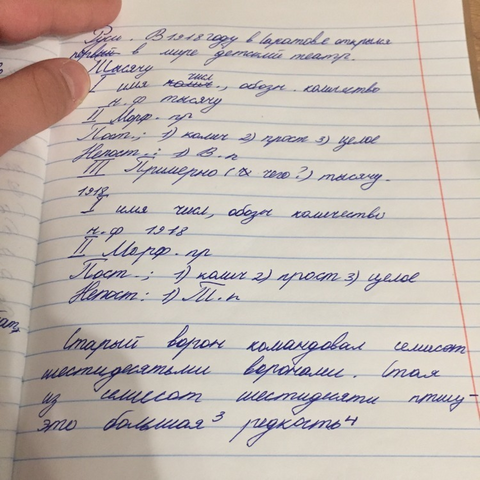 Руси. В 1918 году в Саратове открыт
первый в мире детский театр.
Тысячу
I имя числ., обозн. количество
н.ф тысячу
II Морф. пр
Пост.; 1) колич 2) прост 3) целое
Непост.; 1) В. п
III Примерно (чего?) тысячу.
1918
I имя числ, обозн количество
н.ф 1918
II Морф. пр
Пост.; 1) колич 2) прост 3) целое
Непост: 1) П. п
Старый ворон командовал семисот
шестидесятьми воронами. Стая
из семисот шестидесяти птиц-
это большая³ редкость⁴